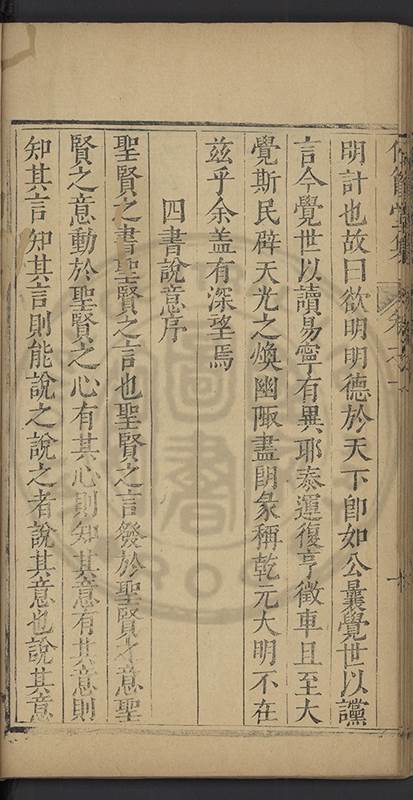 明計也故曰欲明明德於天下卽如公曩覺世以讜
言今覺世以讀易寧有異耶泰運復亨徵車且至大
覺斯民辟天光之煥幽陬盡朗彖稱乾元大明不在
茲乎余盖有深望焉
四書說意序
聖賢之書聖賢之言也聖賢之言發於聖賢之意聖
賢之意動於聖賢之心有其心則知其意有其意則
知其言知其言則能說之說之者說其意也說其意